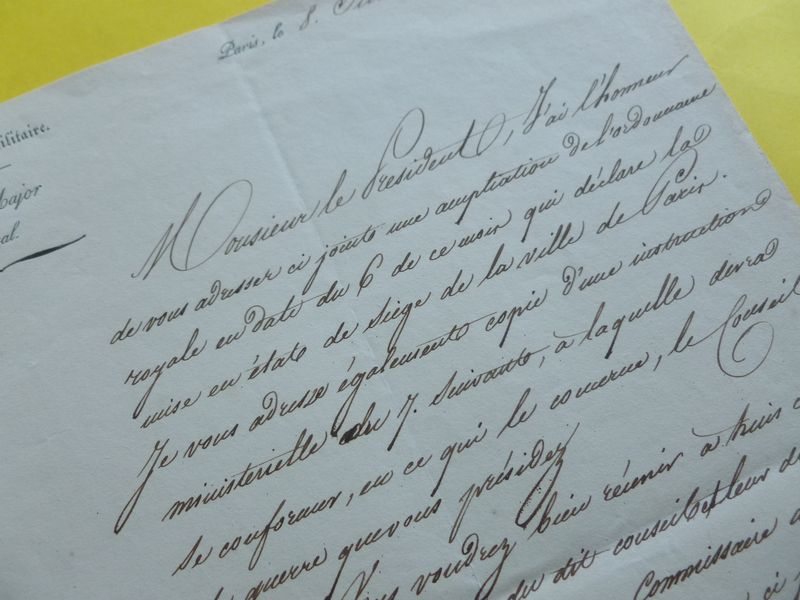 Paris, le 8.
Militaire.
Major
al.
Monsieur le President, J'ai l'honneur
de vous adresser ci jointe une ampliation de l'ordonnance
royale en date du 6 de ce mois qui déclare la
mise en état de siège de la ville de Paris.
Je vous adresse également copie d'une instruction
ministerielle du 7. Suivant, à laquelle devra
se conformer, en ce qui le concerne, le Conseil
de guerre que vous présidez
Vous voudrez bien réunir à huis c
du dit conseil et leur d
Commissaire
ci